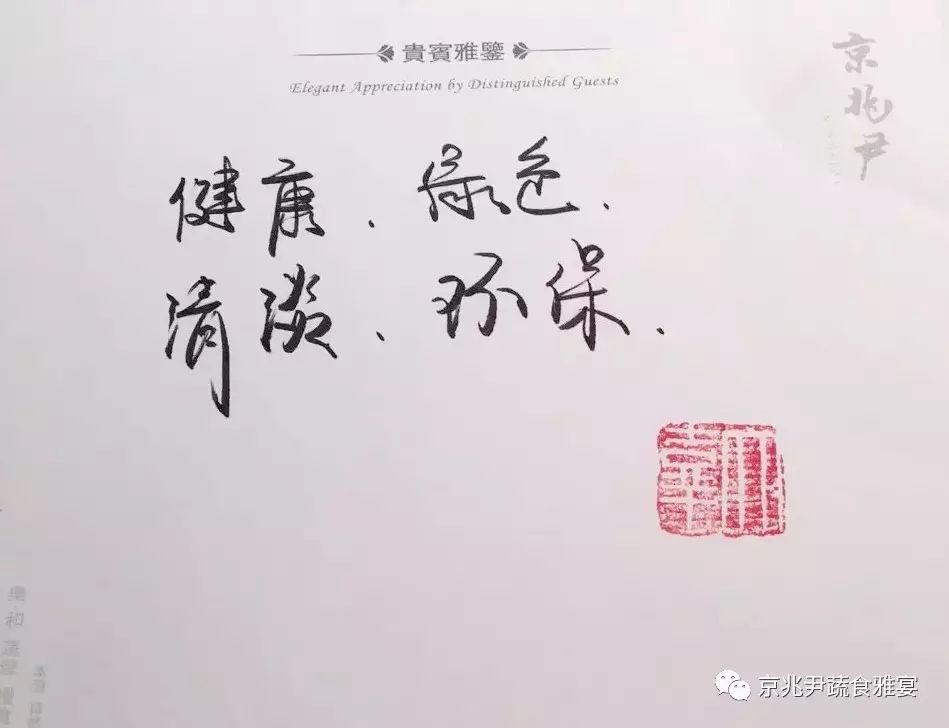 貴賓雅鑒
Elegant Appreciation by Distinguished Guests
京兆尹
健康、绿色、
清淡、环保、
京兆尹蔬食雅宴